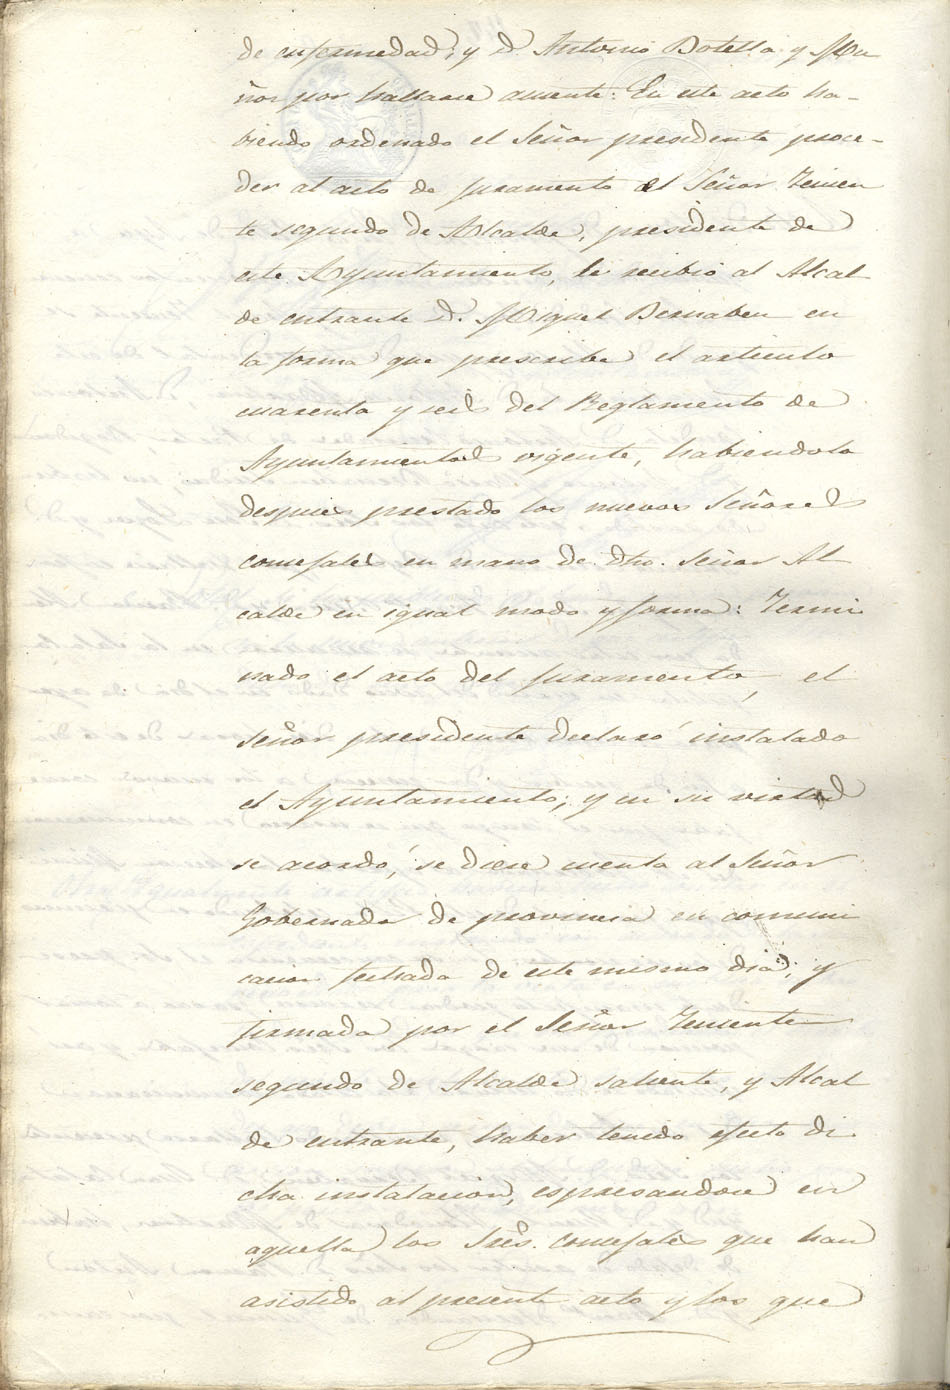 de enfermedad; y D. Antonio Botella y Mu
ñoz por hallarse ausente: En este acto ha-
biendo ordenado el Señor presidente proce-
der al acto de juramento el Señor Tenien
te segundo de Alcalde, presidente de
este Ayuntamiento, le recibio al Alcal
de entrante D. Miguel Bernabeu en
la forma que prescribe el articulo
cuarenta y seis del Reglamento de
Ayuntamientos vigente, habiendolo
despues prestado los nuevos Señores
consejales en mano de dho. Señor Al
calde en igual modo y forma: Termi
nado el acto del juramento, el
Señor presidente declaró instalado
el Ayuntamiento; y en su virtud
se acordó, se diese cuenta al Señor
Gobernador de provincia en comuni
cacion fechada de este mismo dia; y
firmada por el Señor Teniente
segundo de Alcalde saliente, y Alcal
de entrante, haber tenido efecto di
cha instalacion, espresandose en
aquella los Sres. consejales que han
asistido al presente acto y los que